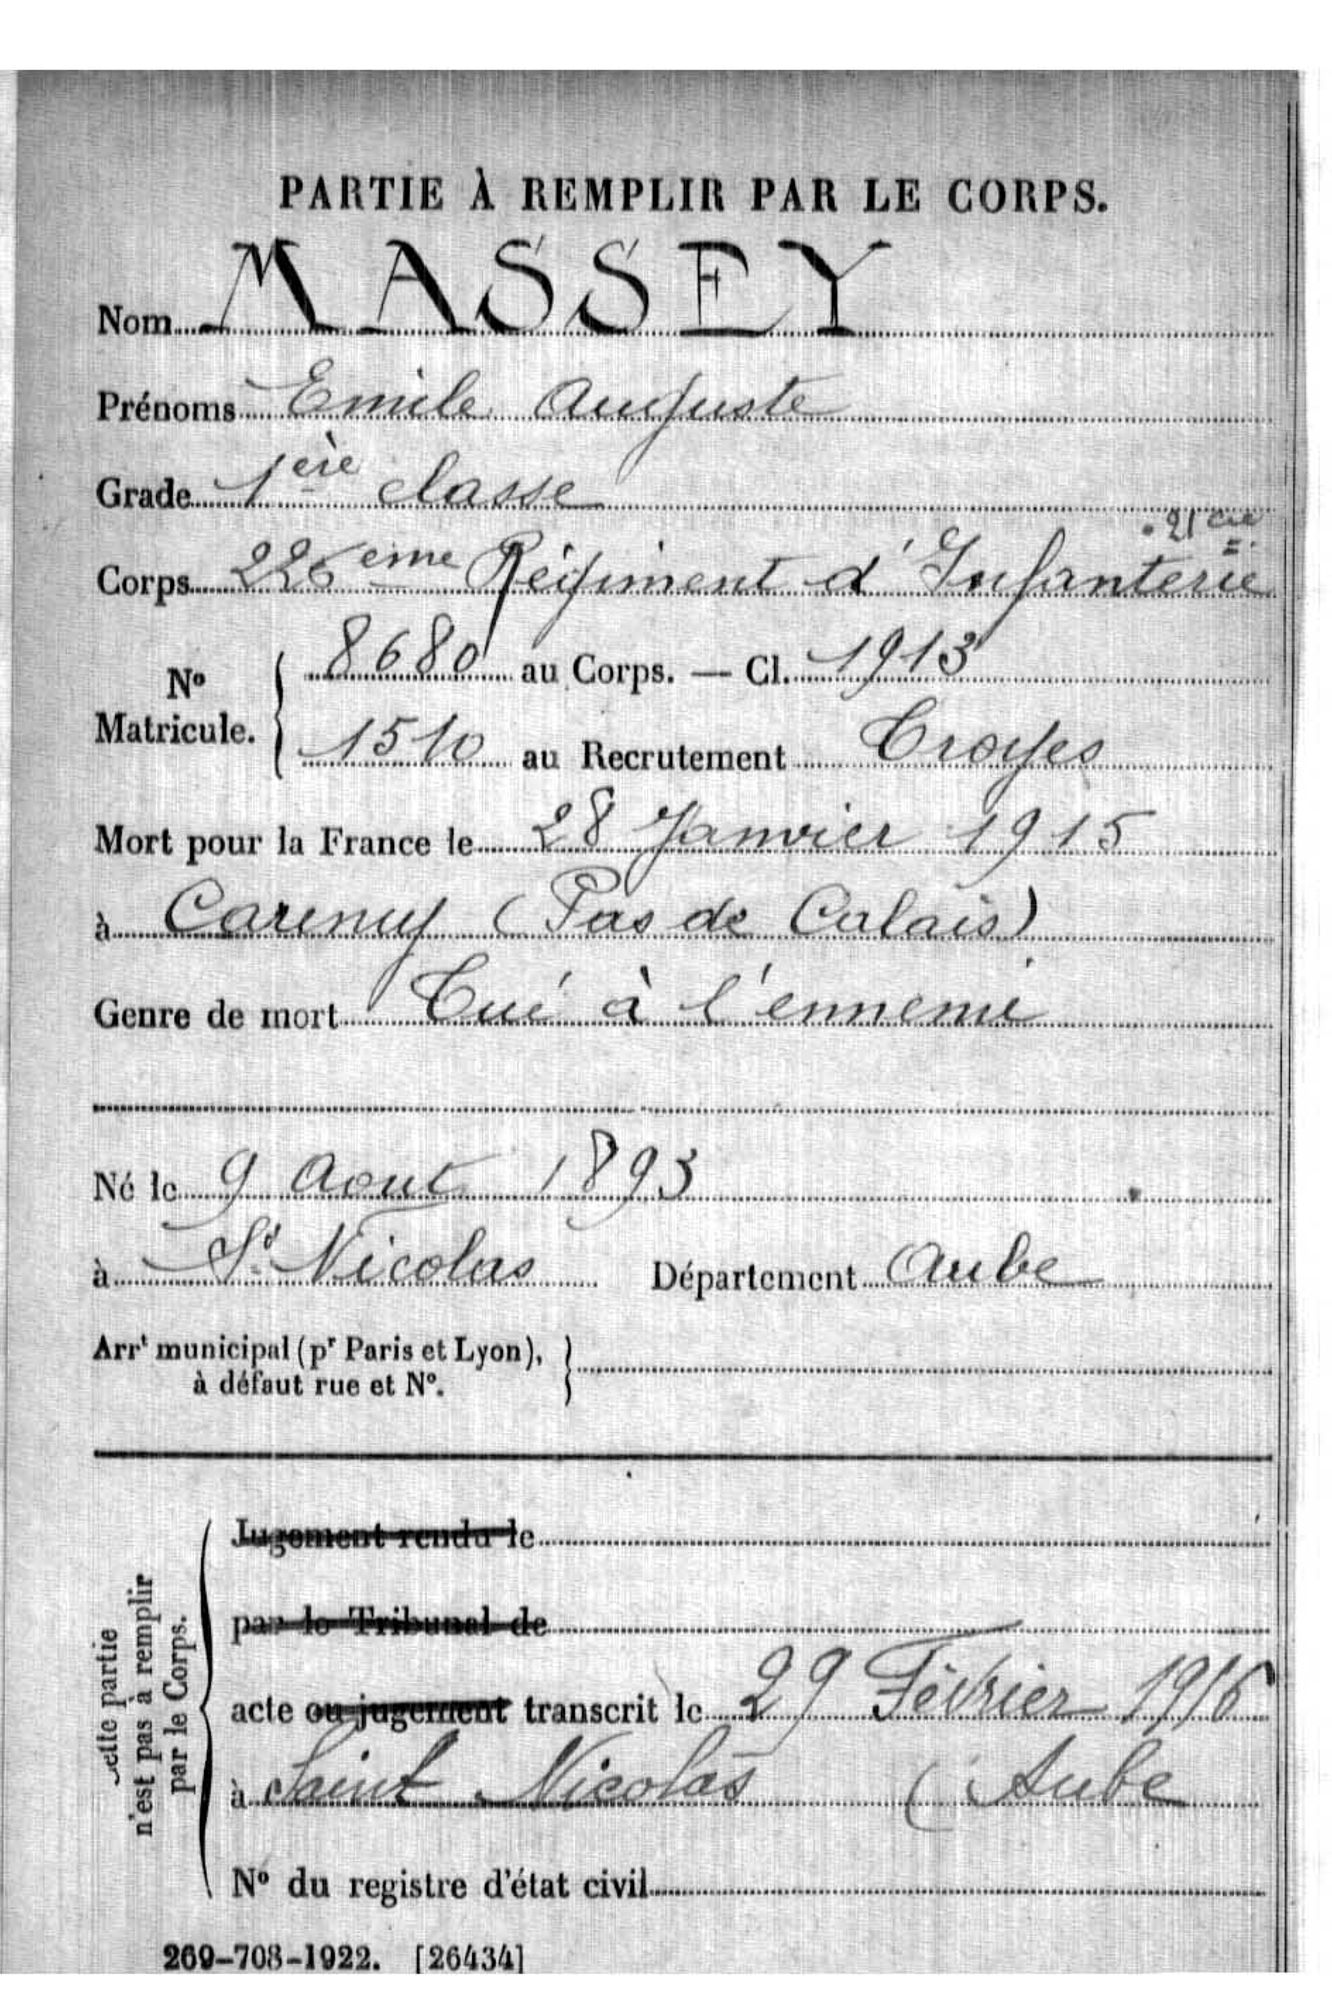 PARTIE À REMPLIR PAR LE CORPS.
Nom MASSEY
Prénoms Emile Auguste
Grade 1ère classe
21 Cie
Corps 226eme Régiment d'Infanterie
No Matricule. 8680 au Corps. — Cl. 1913
1510 au Recrutement Troyes
Mort pour la France le 28 Janvier 1915
à Carency (Pas de Calais)
Genre de mort Tué à l'ennemi
Né le 9 Aout 1893
à St Nicolas Département Aube
Arrt municipal (pr Paris et Lyon),
à défaut rue et No.
Cette partie
n'est pas à remplir
par le Corps.
Jugement rendu le
par le Tribunal de
acte ou jugement transcrit le 29 Février 1916
à Saint Nicolas (Aube
No du registre d'état civil
269-708-1922. [26434]